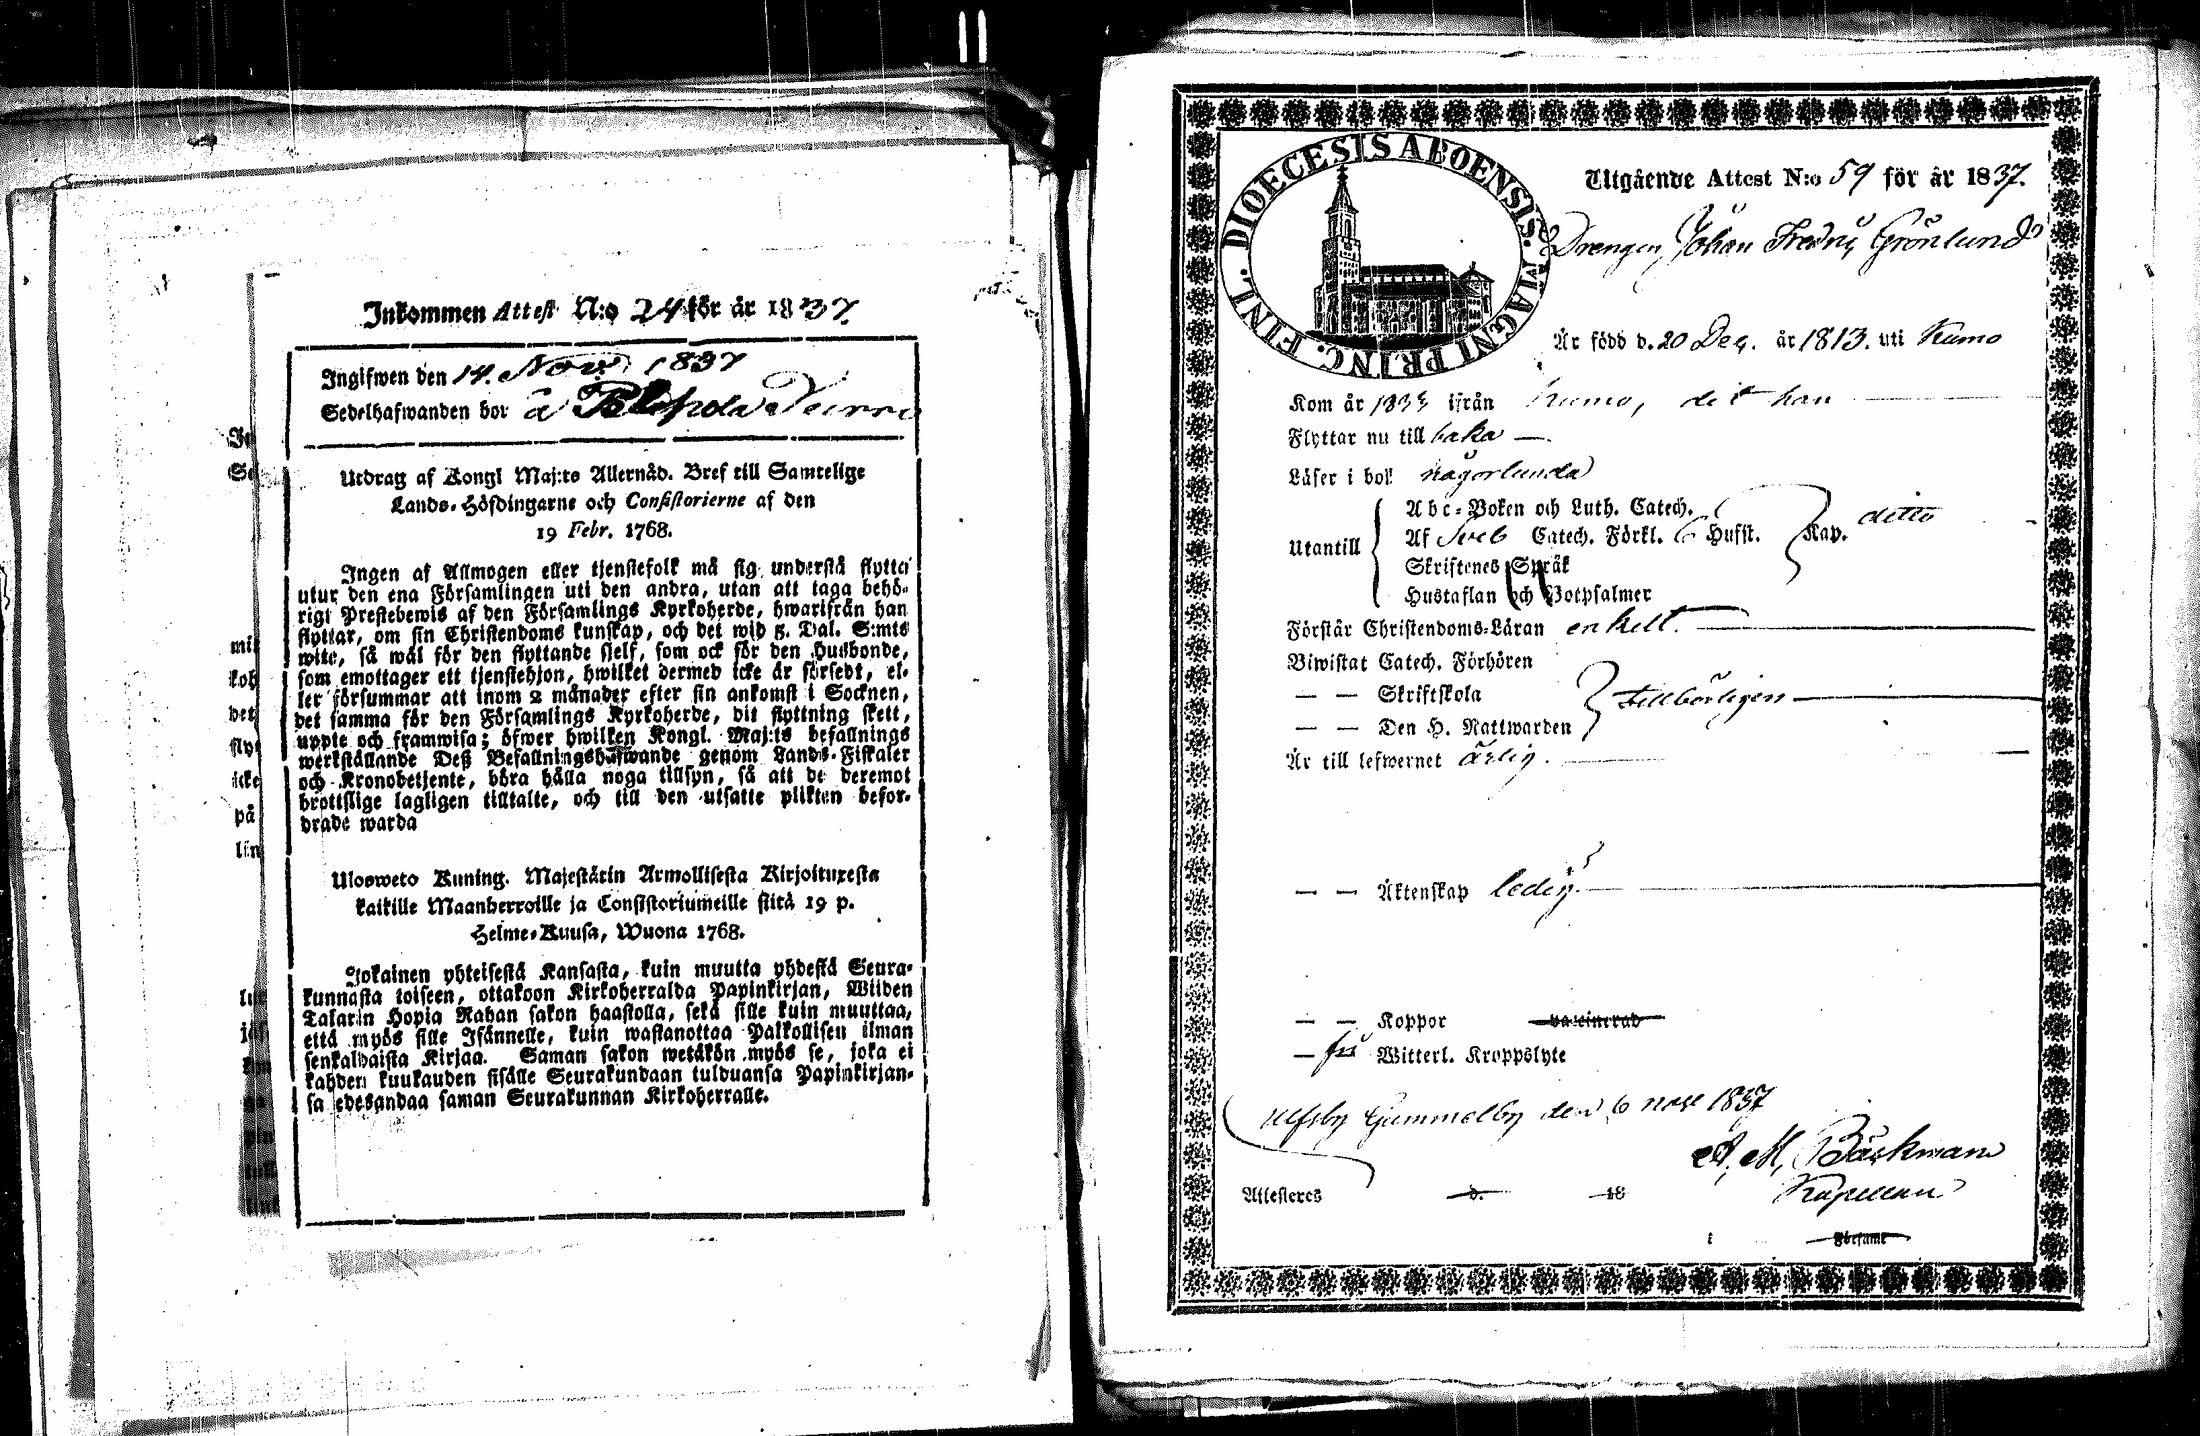 Inkommen Attest N:o 24 för år 1837.
Ingifwen den 14. Nov. 1837
Sedelhafwanden bor å
Utdrag af Kongl Maj:ts Allernåd. Bref till Samtelige
Lands-Höfdingarne och Consistorierne af den
19 Febr. 1768.
Ingen af Allmogen eller tjenstefolk må sig understå flytta
utur den ena Församlingen uti den andra, utan att taga behö-
rigt Prestebewis af den Församlings Kyrkoherde, hwarifrån han
flyttar, om sin Christendoms kunskap, och det wid 5. Dal. S:mts
wite, så wäl för den flyttande sjelf, som ock för den Husbonde,
som emottager ett tjenstehjon, hwilket dermed icke är försedt, el-
ler försummar att inom 2 månader efter sin ankomst i Socknen,
det samma för den Församlings Kyrkoherde, dit flyttning skett,
uppte och framwisa; öfwer hwilken Kongl. Maj:ts befallnings
werkställande Deß Befallningshafwande genom Lands-Fiskaler
och Kronobetjente, böra hålla noga tillsyn, så att de deremot
brottslige lagligen tilltalte, och till den utsatte plikten befor-
drade warda
Ulosweto Kuning. Majestätin Armollisesta Kirjoituxesta
kaikille Maanherroille ja Consistoriumeille siitä 19 p.
Helme-Kuusa, Wuona 1768.
Jokainen yhteisestä Kansasta, kuin muutta yhdestä Seura-
kunnasta toiseen, ottakoon Kirkoherralda Papinkirjan, Wiiden
Talarin Hopia Rahan sakon haastolla, sekä sille kuin muuttaa,
että myös sille Isännelle, kuin wastanottaa Palkollisen ilman
senkaldaista Kirjaa. Saman sakon wetäkön myös se, joka ei
kahden kuukauden sisälle Seurakundaan tulduansa Papinkirjan-
sa edesandaa saman Seurakunnan Kirkoherralle.
DIOECESIS ABOENSIS. MAGNI PRINC. FINL.
Utgående Attest N:o 59 för år 1837.
Drengen Johan Fredric Grönlund
Är född d. 20 Dec. år 1813. uti Kumo
Kom år 1835 ifrån Kumo, dit han
Flyttar nu till baka
Läser i bok någorlunda
Utantill
Abc-Boken och Luth. Catech.
Af Sveb Catech. Förkl. 6 Hufst. Kap. ditto
Skriftenes Språk
Hustaflan och Botpsalmer
Förstår Christendoms-Läran enkelt.
Biwistat Catech. Förhören
— — Skriftskola tillbörligen
— — Den H. Nattwarden
Är till lefwernet ärlig.
— — Äktenskap ledig.
— — Koppor vaccinerad
— fri Witterl. Kroppslyte
Ulfsby Gammelby den 6 nov 1837
A. M. Bäckman
Attesteres d. 18 Kapellan
i Församl